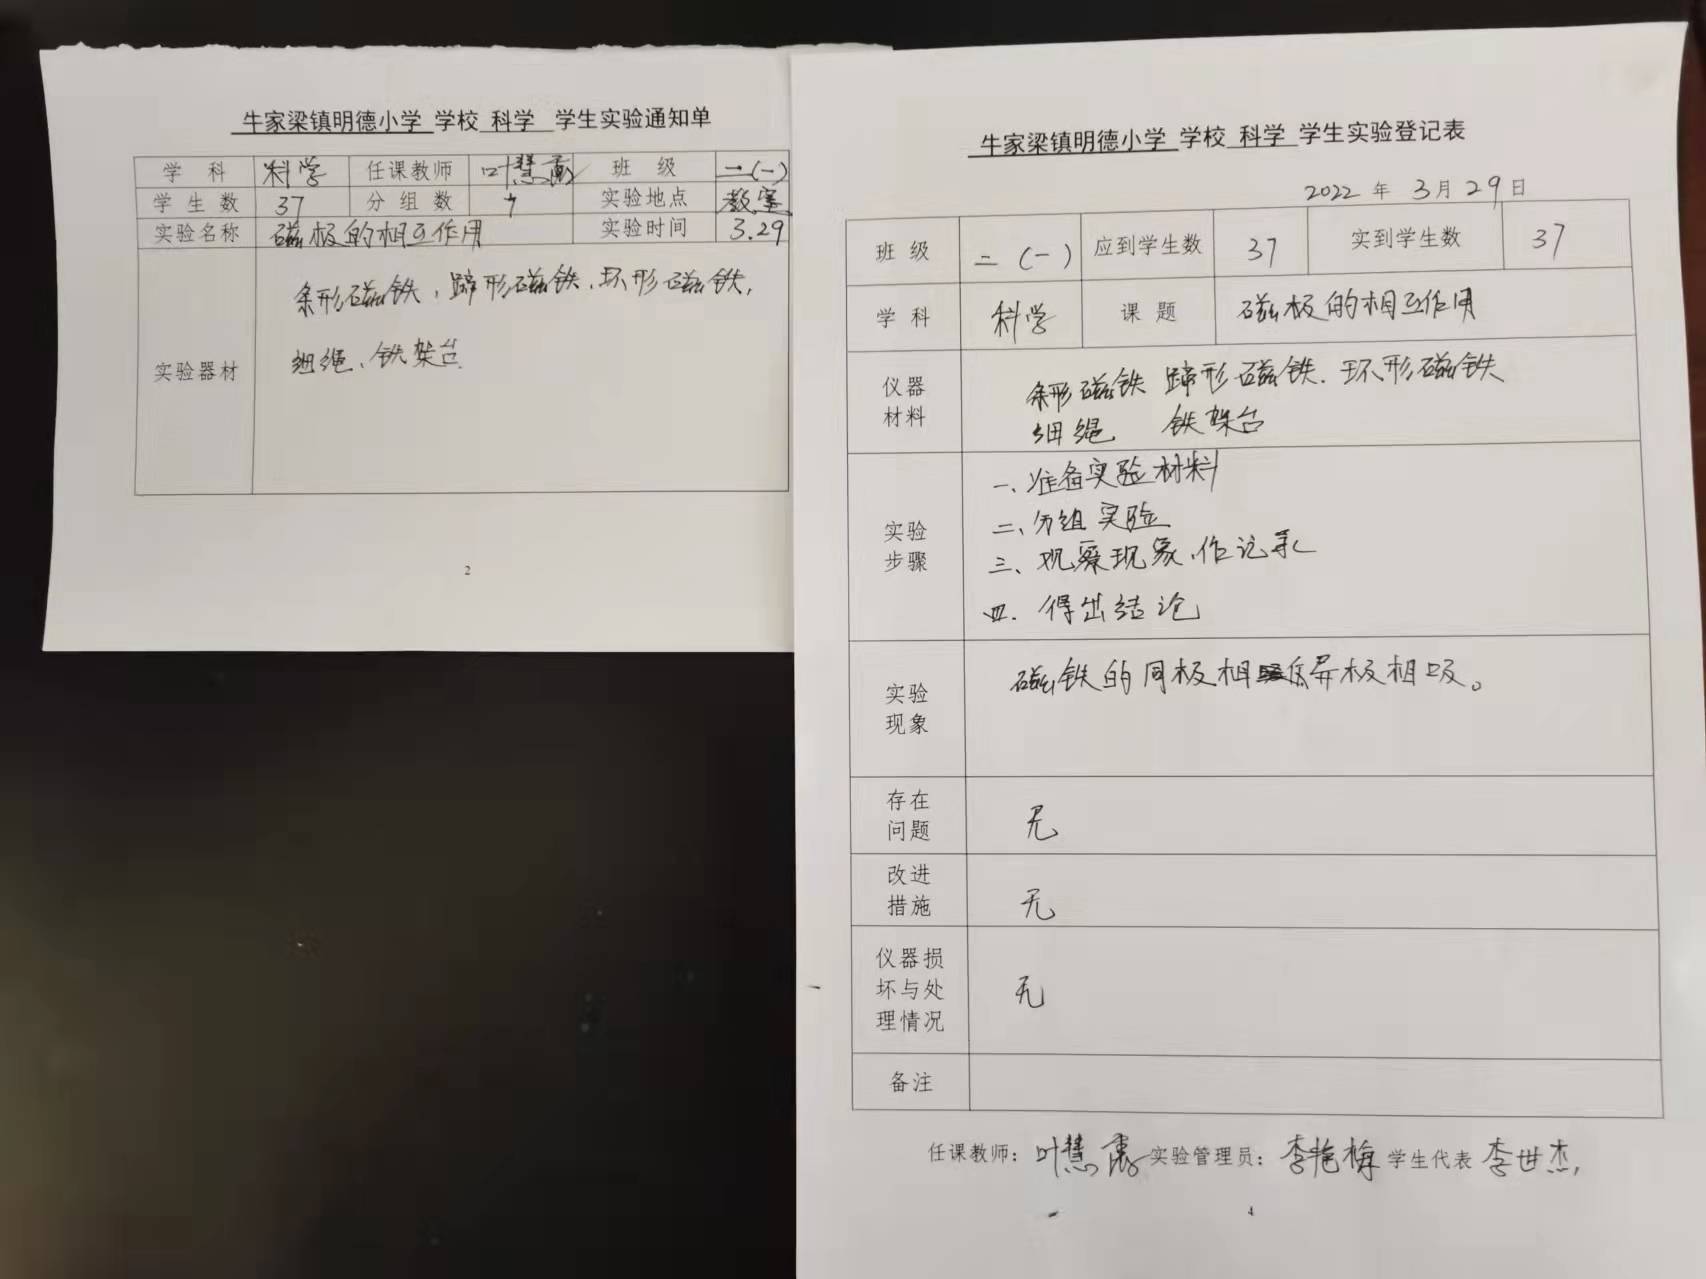 牛家梁镇明德小学 学校 科学 学生实验通知单
学 科 科学 任课教师 叶慧 班 级 二(一)
学生数 37 分组数 实验地点 教室
实验名称 磁极的相互作用 实验时间 3.29
实验器材
条形磁铁,蹄形磁铁、环形磁铁,
细绳、铁架台
2
牛家梁镇明德小学 学校 科学 学生实验登记表
2022 年 3月29日
班 级 二(一) 应到学生数 37 实到学生数 37
学 科 科学 课 题 磁极的相互作用
仪器材料
条形磁铁 蹄形磁铁、环形磁铁
细绳 铁架台
实验步骤
一、准备实验材料
二、分组实验
三、观察现象、作记录
四、得出结论
实验现象
磁铁的同极相 异极相吸。
存在问题 无
改进措施 无
仪器损坏与处理情况 无
备注
任课教师:叶慧 实验管理员:李艳梅 学生代表 李世杰
4